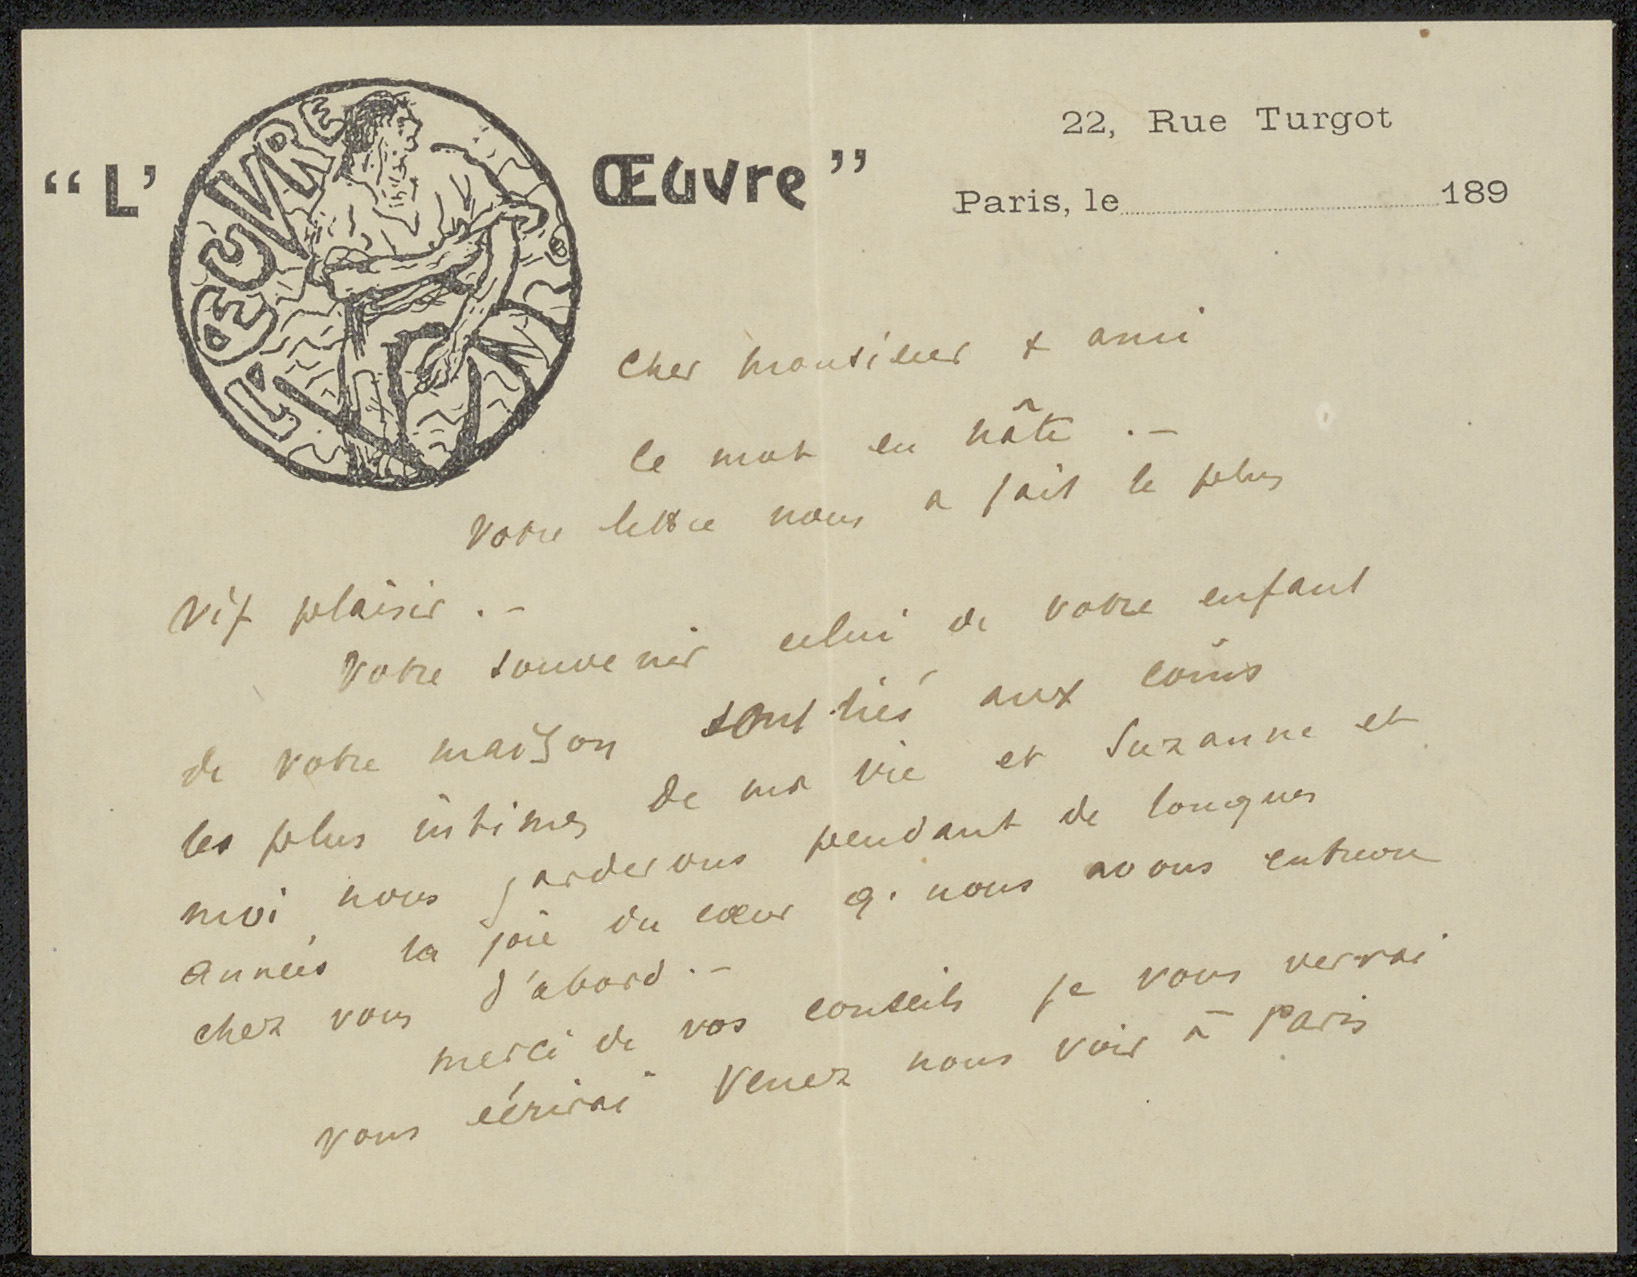 “L’Œuvre”
L'ŒUVRE
22, Rue Turgot
Paris, le 189
Cher monsieur & ami
Ce mot en hâte . –
Votre lettre nous a fait le plus
vif plaisir . –
Votre souvenir celui de votre enfant
de votre maison sont liés aux coins
les plus intimes de ma vie et Suzanne et
moi nous garderons pendant de longues
années la joie du cœur q. nous avons
chez vous d'abord . –
merci de vos conseils je vous verrai
vous écrirai Venez nous voir à Paris